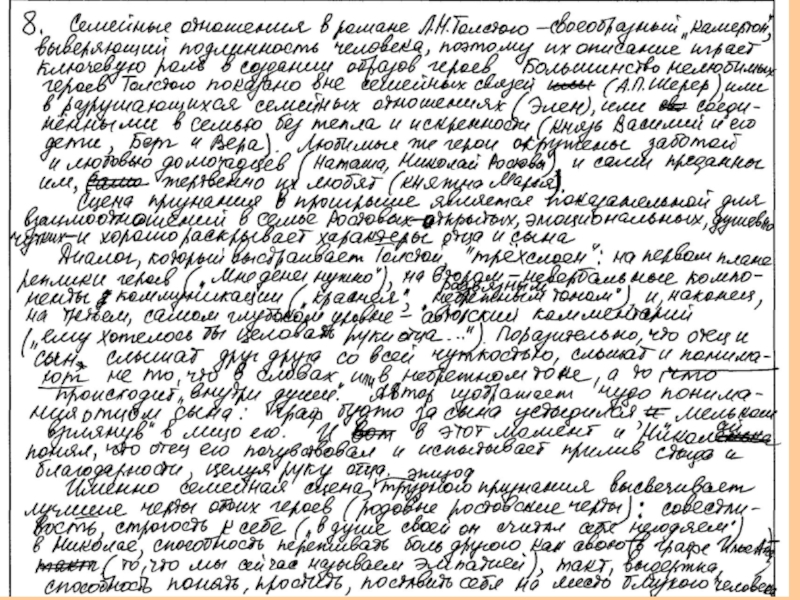 8. Семейные отношения в романе Л.Н.Толстого – своеобразный „камертон",
выверяющий подлинность человека, поэтому их описание играет
ключевую роль в создании образов героев. Большинство нелюбимых
героев Толстого показано вне семейных связей (А.П.Шерер) или
в разрушающихся семейных отношениях (Элен), или соеди-
нёнными в семью без тепла и искренности (князь Василий и его
дети, Берг и Вера). Любимые же герои окружены заботой
и любовью домочадцев (Наташа, Николай Ростовы) и сами преданны
им, жертвенно их любят (княжна Марья).
Сцена признания в проигрыше является показательной для
взаимоотношений в семье Ростовых – открытых, эмоциональных, душевно
чутких – и хорошо раскрывает характеры отца и сына.
Диалог, который выстраивает Толстой "трёхслоен": на первом плане
реплики героев („Мне денег нужно"), на втором – невербальные компо-
ненты коммуникации („краснея", „небрежным тоном") и, наконец,
на третьем, самом глубоком уровне – авторский комментарий
(„ему хотелось бы целовать руки отца..."). Поразительно, что отец и
сын слышат друг друга со всей чуткостью, слышат и понима-
ют не то, что в словах или в небрежном тоне, а то что
происходит „внутри душей". Автор изображает чудо понима-
ния отцом сына: граф будто за сына устыдился „мельком
взглянув" в лицо его. И в этот момент и Николай
понял, что отец его почувствовал и испытывает прилив стыда и
благодарности, целуя руку отца.
Именно семейная сцена, эпизод трудного признания высвечивает
лучшие черты этих героев (родовые ростовские черты): совестли-
вость, строгость к себе („в душе своей он считал себя негодяем")
в Николае, способность переживать боль другого как свою в графе Илье Ан.
(то, что мы сейчас называем эмпатией), такт, выдержка,
способность понять, простить, поставить себя на место близкого человека